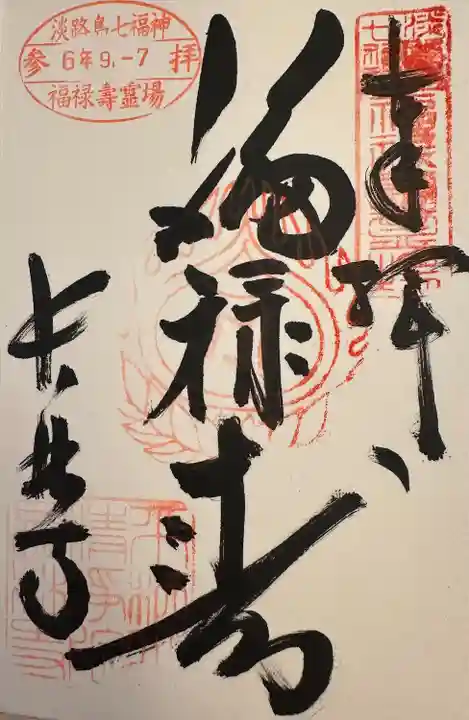 奉拝
福禄寿
長林寺
淡路島七福神
参 6年9.-7 拝
福禄壽霊場